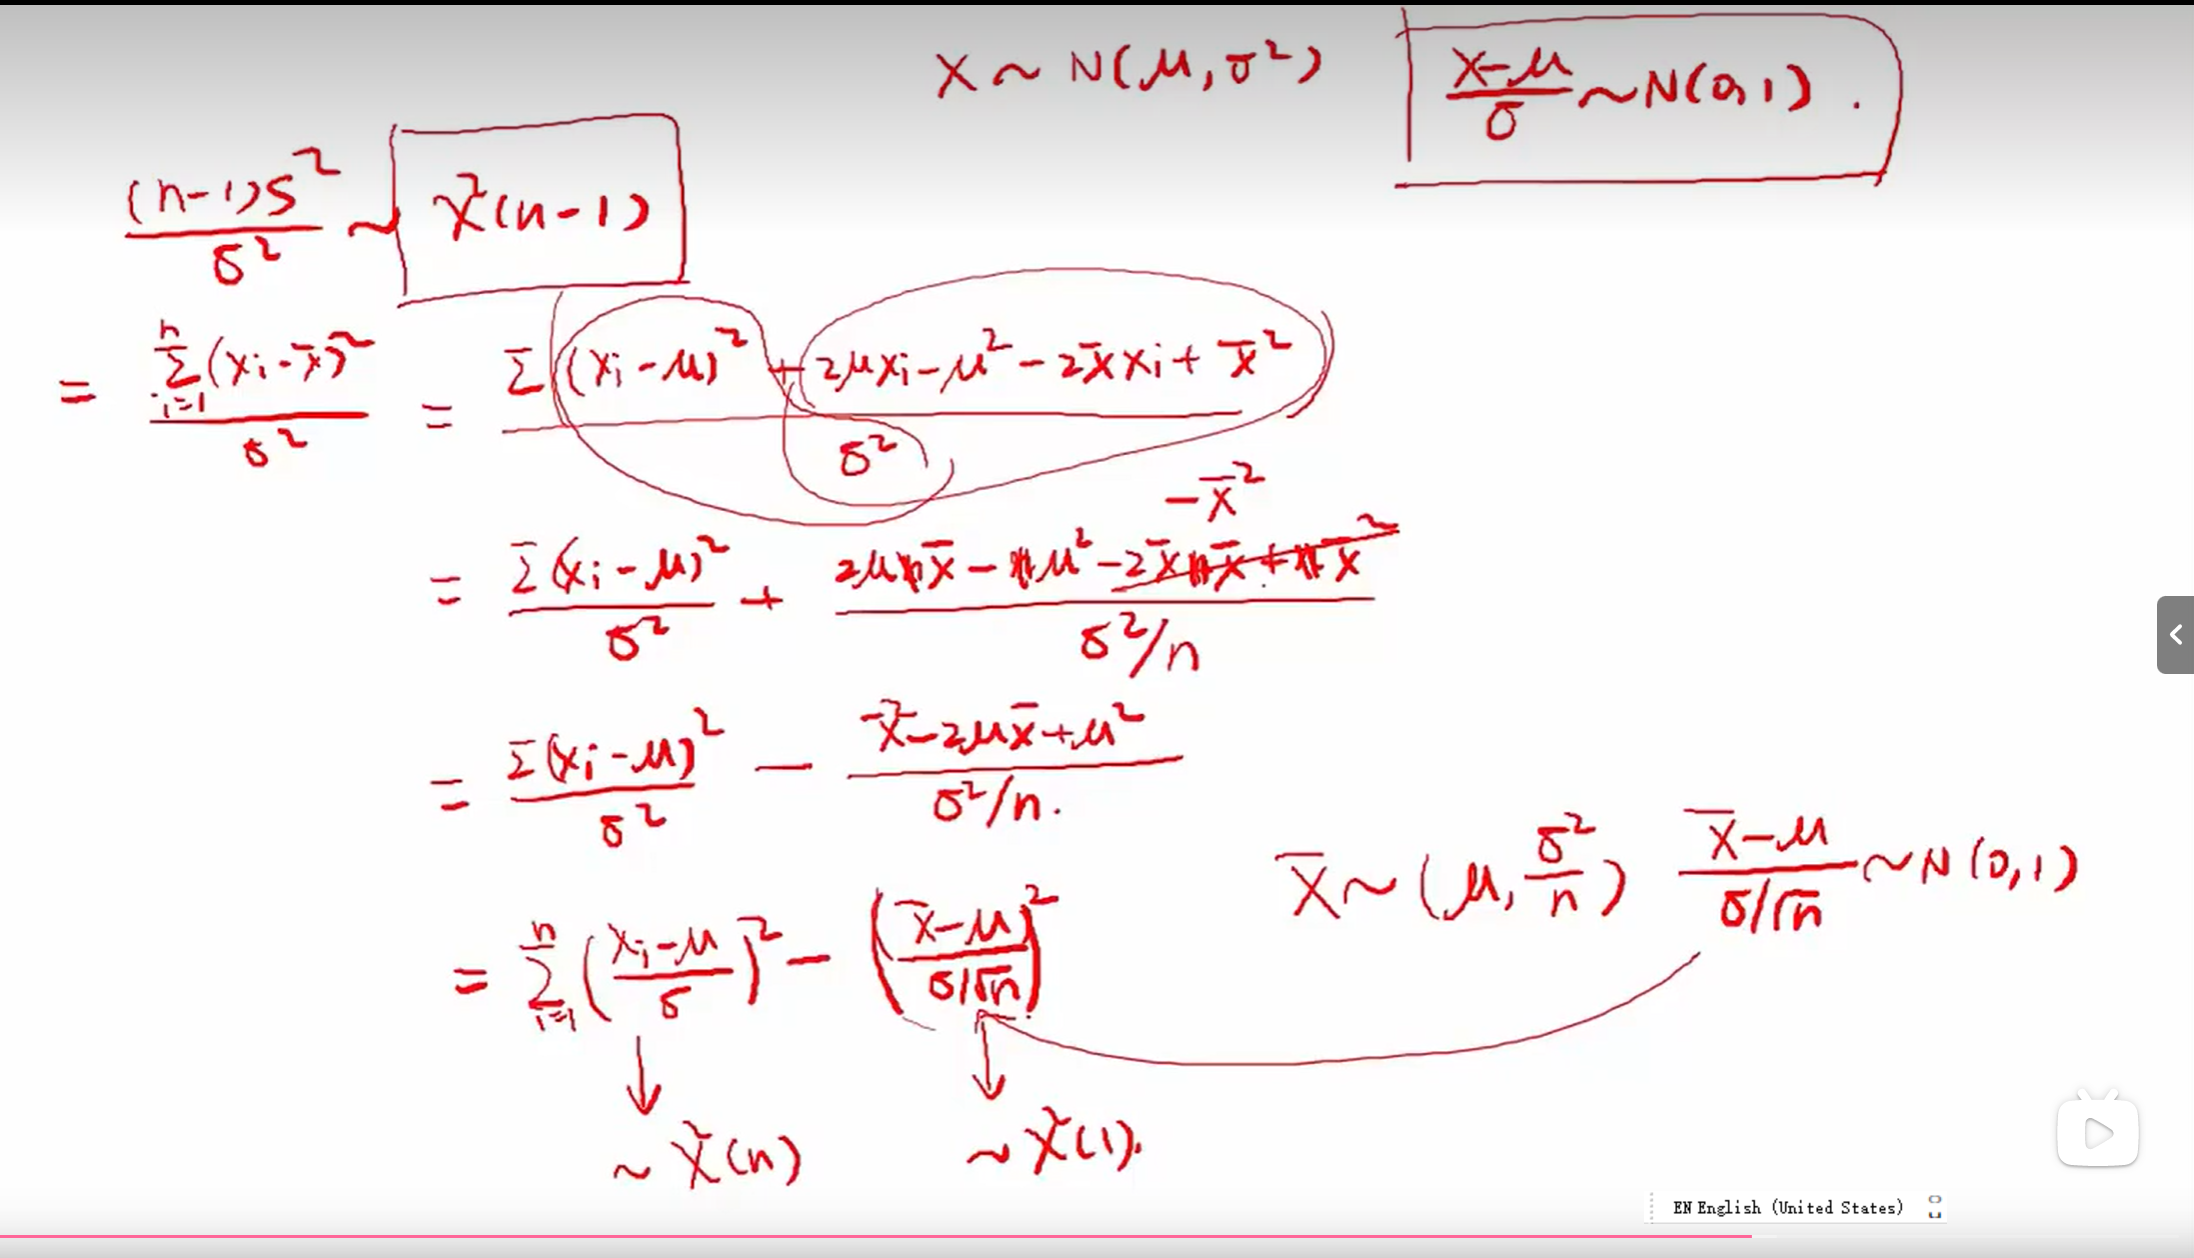 X ~ N(μ, σ²)
(X-μ)/σ ~ N(0,1).
(n-1)S²/σ² ~ χ²(n-1)
= Σ_{i=1}^{n} (xi - x̄)² / σ² = Σ (xi - μ)² + 2μxi - μ² - 2x̄xi + x̄² / σ²
-x̄²
= Σ(xi - μ)² / σ² + 2μnx̄ - nμ² - 2x̄nx̄ + nx̄² / σ²/n
= Σ(xi - μ)² / σ² - x̄² - 2μx̄ + μ² / σ²/n.
X̄ ~ (μ, σ²/n) (X̄-μ)/(σ/√n) ~ N(0,1)
= Σ_{i=1}^{n} ((xi - μ)/σ)² - ((x̄-μ)/(σ/√n))²
~ χ²(n) ~ χ²(1).
EN English (United States)